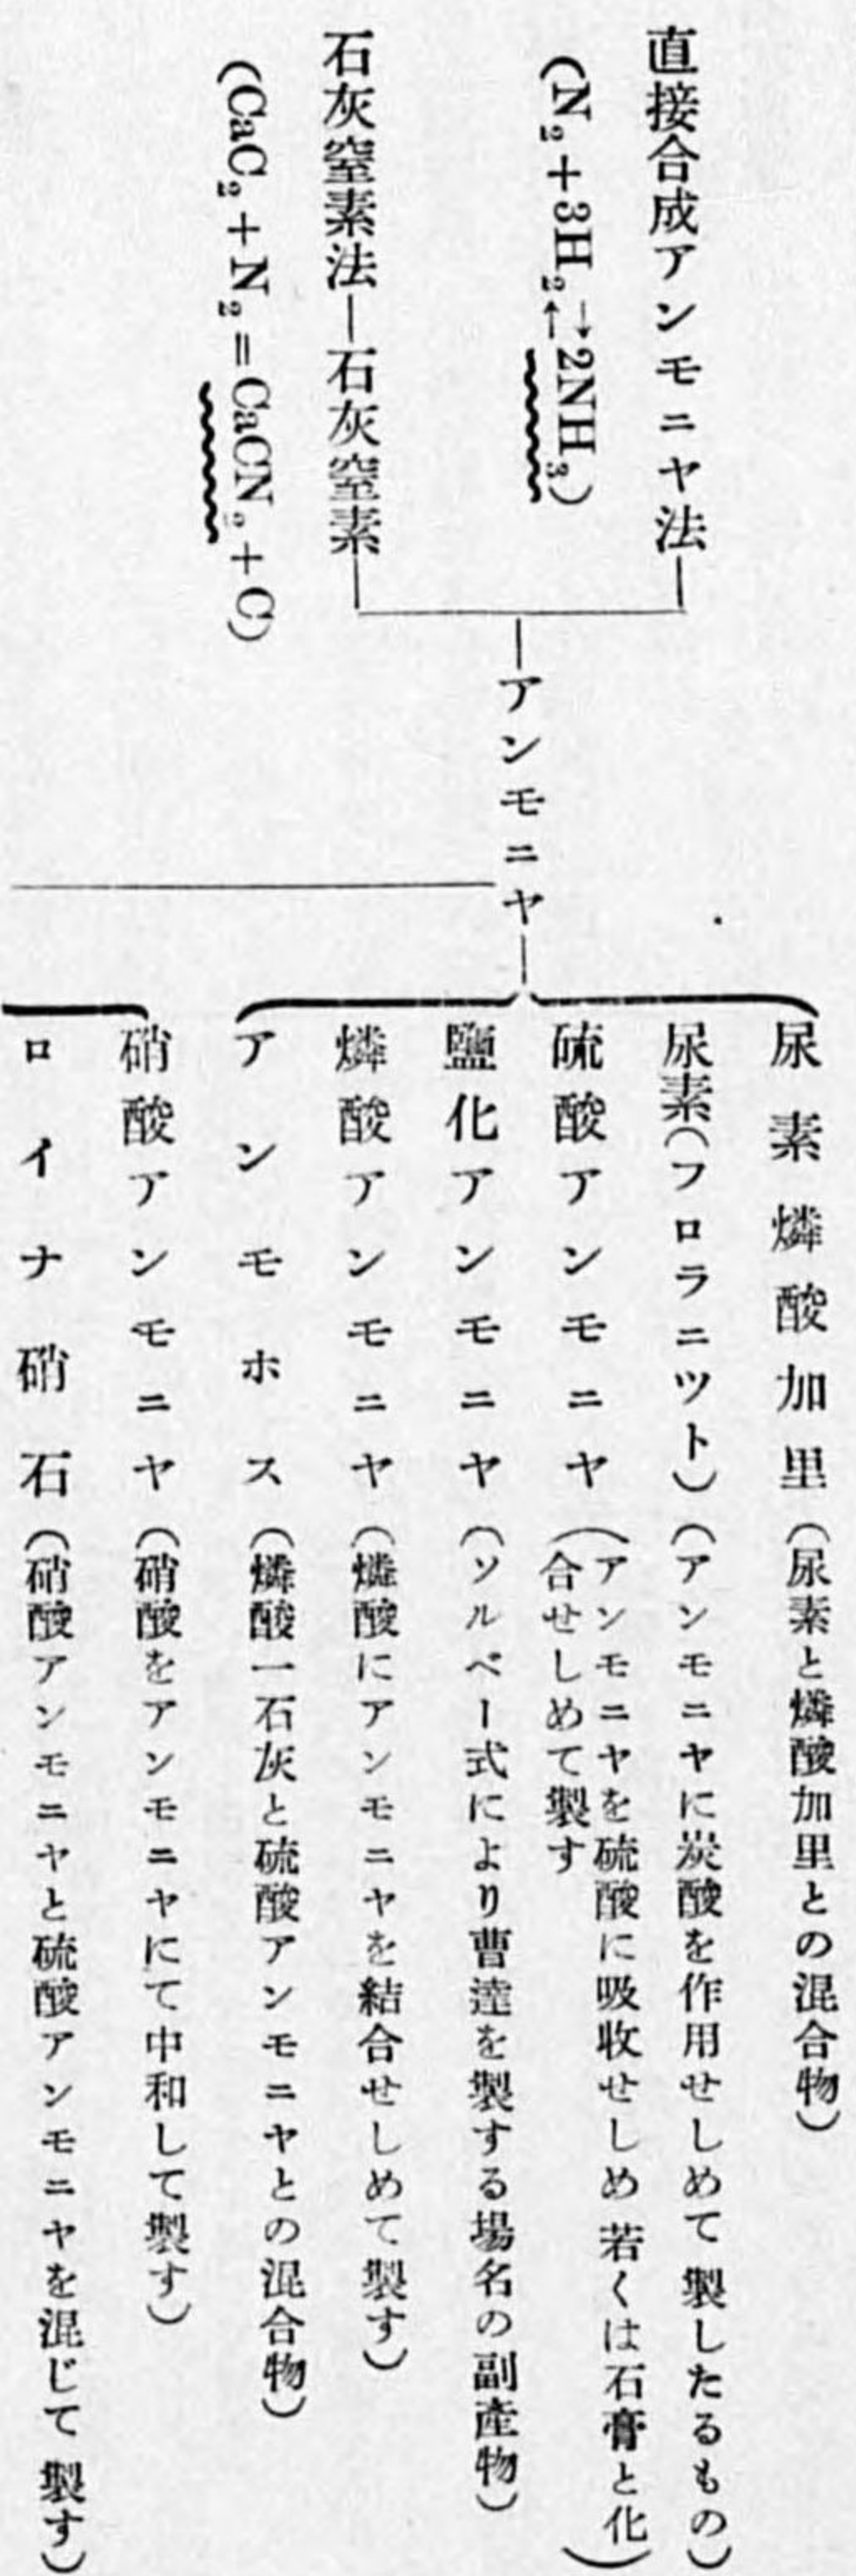 直接合成アンモニヤ法
(N₂+3H₂⇄2NH₃)
石灰窒素法―石灰窒素
(CaC₂+N₂=CaCN₂+C)
アンモニヤ
尿素燐酸加里(尿素と燐酸加里との混合物)
尿素(フロラニツト)(アンモニヤに炭酸を作用せしめて製したるもの)
硫酸アンモニヤ(アンモニヤを硫酸に吸收せしめ若くは石膏と化
合せしめて製す)
鹽化アンモニヤ(ソルベー式により曹達を製する場名の副産物)
燐酸アンモニヤ(燐酸にアンモニヤを結合せしめて製す)
アンモホス(燐酸一石灰と硫酸アンモニヤとの混合物)
硝酸アンモニヤ(硝酸をアンモニヤにて中和して製す)
ロイナ硝石(硝酸アンモニヤと硫酸アンモニヤを混じて製す)